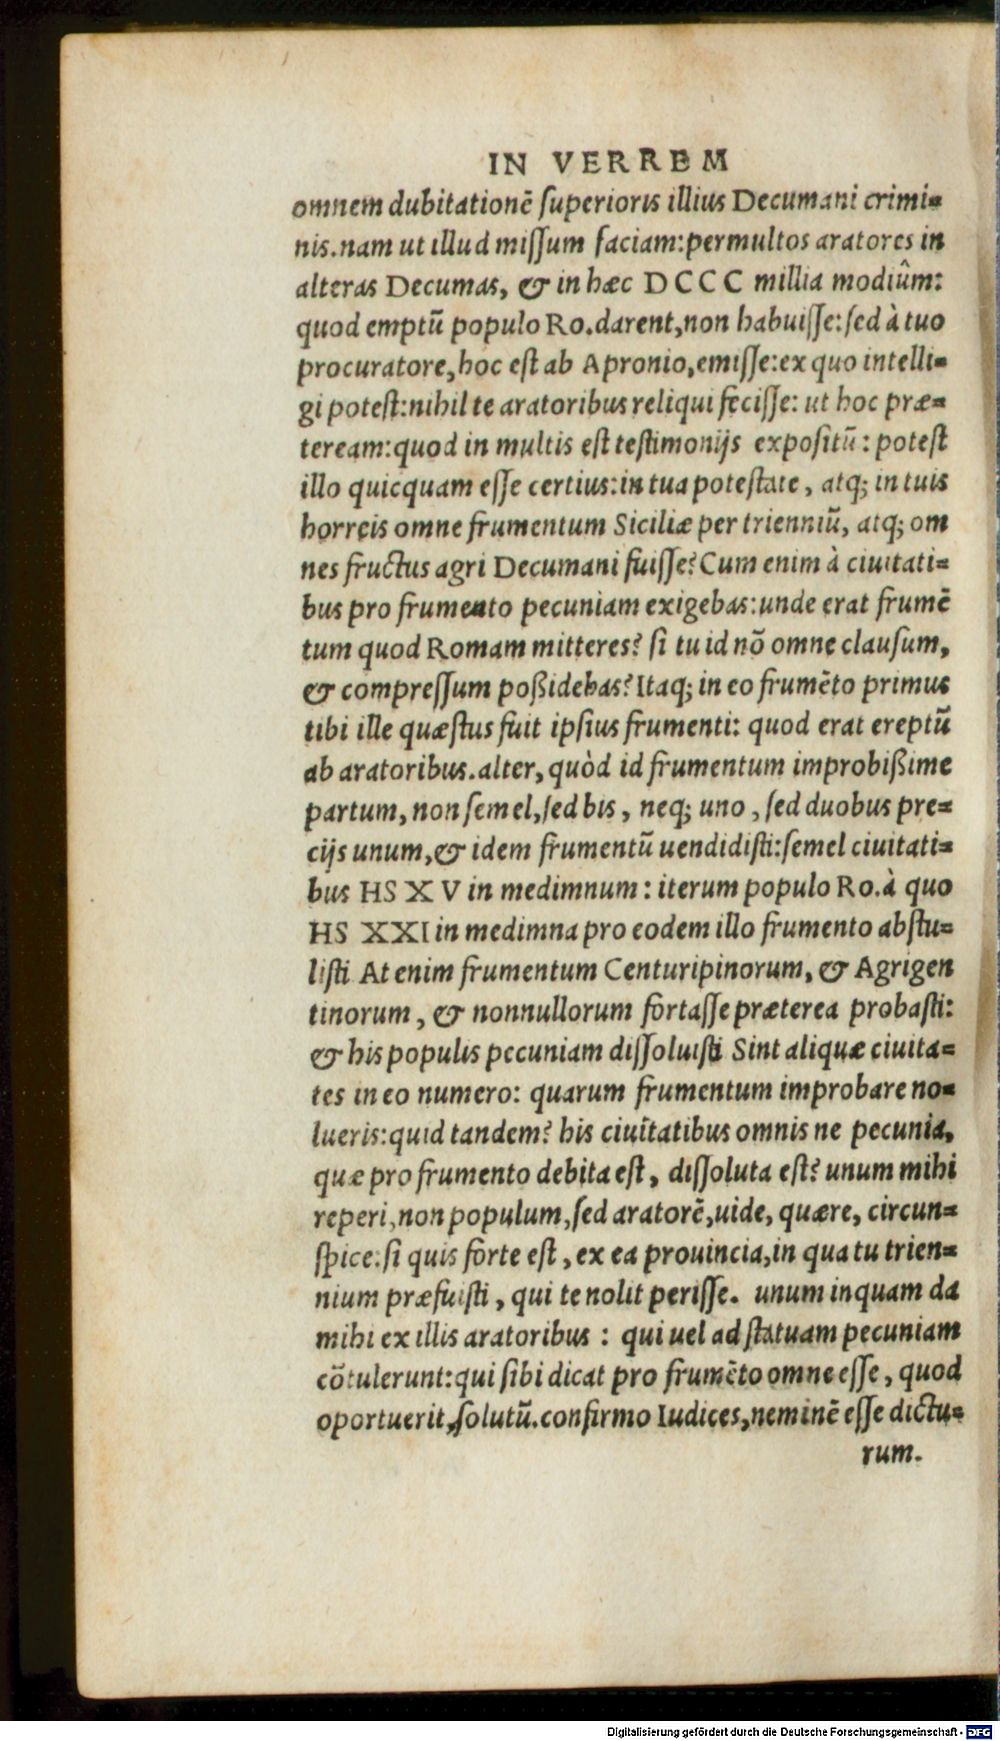 IN VERREM
omnem dubitationē ſuperioris illius Decumani crimi=
nis.nam ut illud miſſum faciam:permultos aratores in
alteras Decumas, & in hæc DCCC millia modiûm:
quod emptū populo Ro.darent,non habuiſſe:ſed à tuo
procuratore,hoc eſt ab Apronio,emiſſe:ex quo intelli=
gi poteſt:nihil te aratoribus reliqui feciſſe: ut hoc præ=
teream:quod in multis eſt teſtimonijs expoſitū: poteſt
illo quicquam eſſe certius:in tua poteſtate, atq; in tuis
horreis omne frumentum Siciliæ per trienniū, atq; om
nes fructus agri Decumani fuiſſe? Cum enim à ciuitati=
bus pro frumento pecuniam exigebas:unde erat frumē
tum quod Romam mitteres? ſi tu id nō omne clauſum,
& compreſſum poßidebas? Itaq; in eo frumēto primus
tibi ille quæſtus fuit ipſius frumenti: quod erat ereptū
ab aratoribus.alter, quòd id frumentum improbißime
partum, non ſemel,ſed bis, neq; uno, ſed duobus pre=
cijs unum,& idem frumentū uendidiſti:ſemel ciuitati=
bus HS XV in medimnum: iterum populo Ro.à quo
HS XXI in medimna pro eodem illo frumento abſtu=
liſti At enim frumentum Centuripinorum, & Agrigen
tinorum, & nonnullorum fortaſſe præterea probaſti:
& his populis pecuniam diſſoluiſti Sint aliquæ ciuita=
tes in eo numero: quarum frumentum improbare no=
lueris:quid tandem? his ciuitatibus omnis ne pecunia,
quæ pro frumento debita eſt, diſſoluta eſt? unum mihi
reperi,non populum,ſed aratorē,uide, quære, circun=
ſpice:ſi quis forte eſt, ex ea prouincia,in qua tu trien=
nium præfuiſti, qui te nolit perijſſe. unum inquam da
mihi ex illis aratoribus: qui uel ad ſtatuam pecuniam
cōtulerunt:qui ſibi dicat pro frumēto omne eſſe, quod
oportuerit,ſolutū.confirmo Iudices,neminē eſſe dictu=
rum.
Digitalisierung gefördert durch die Deutsche Forschungsgemeinschaft - DFG